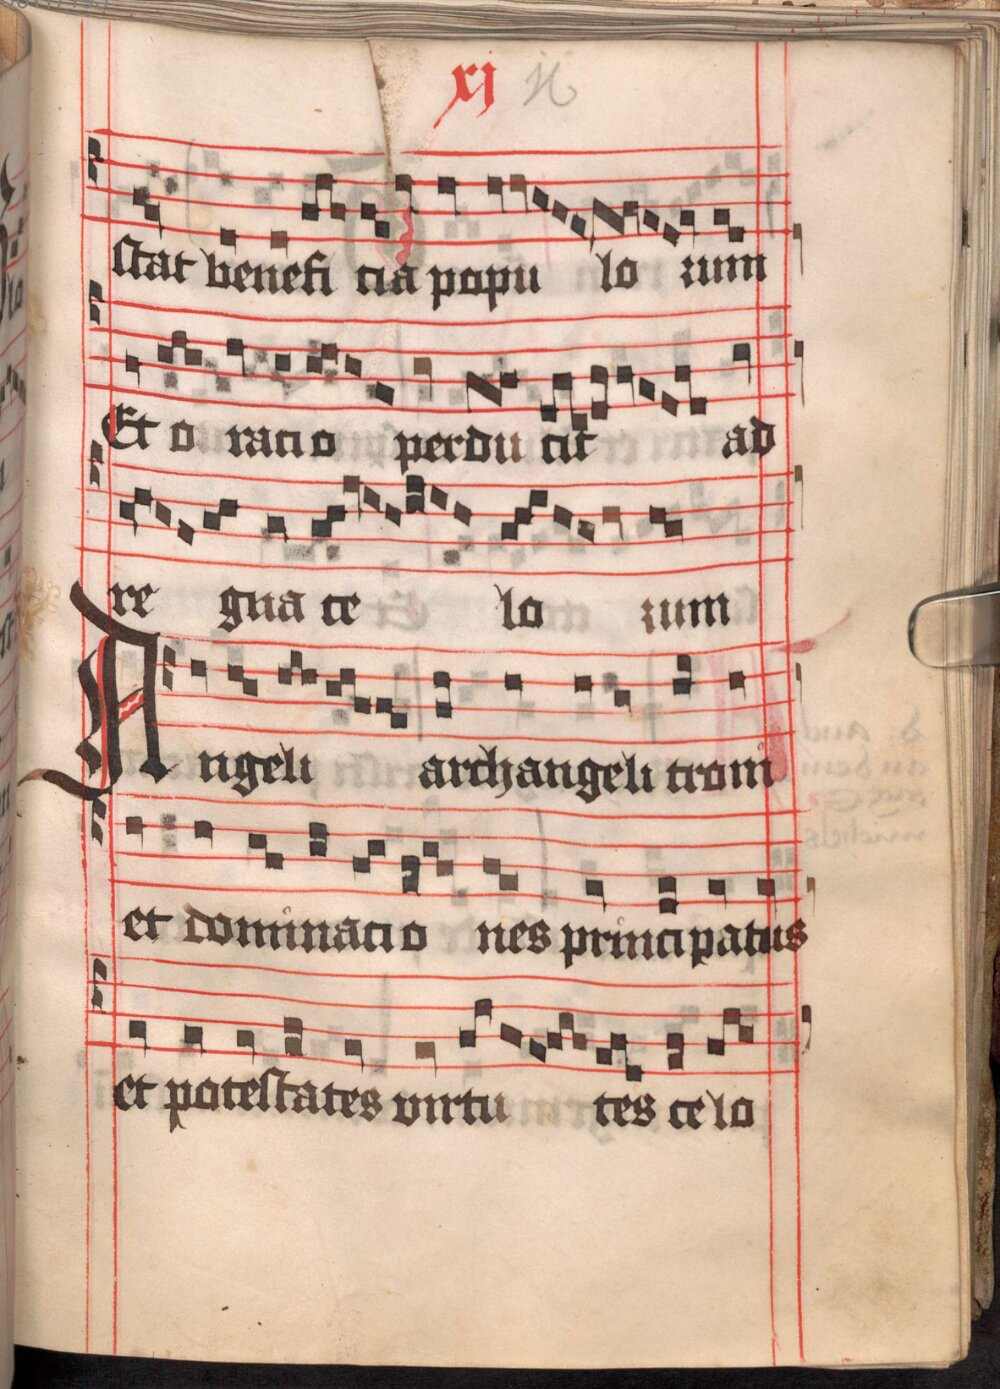 xj
stat benefi cia popu lo rum
Et o racio perdu cit ad
re gna ce lo rum
Angeli archangeli troni
et dominacio nes principatus
et potestates virtu tes celo